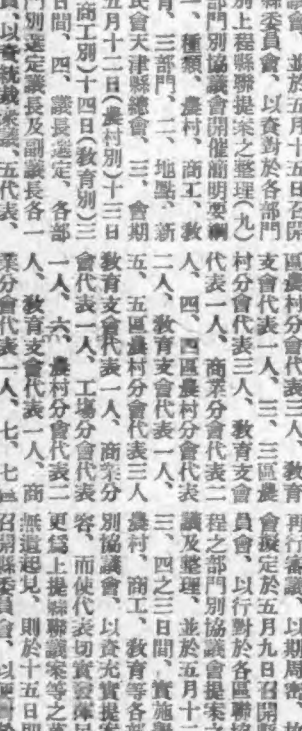 議會、並於五月十五日召開
縣委員會、以資對於各部門
別上程縣聯提案之整理(九)
部門別協議會開催簡明要綱
一、種類、農村、商工、教
育、三部門、二、地點、新
民會天津縣總會、三、會期
五月十二日(農村別)十三日
(商工別)十四日(教育別)三
日間、四、議長選定、各部
門別選定議長及副議長各一
員、以資統裁議、五代表、
區農村分會代表三人、教育
支會代表一人、三、三區農
村分會代表三人、教育支會
代表一人、商業分會代表一
人、四、四區農村分會代表
二人、教育支會代表一人、
五、五區農村分會代表三人
教育支會代表一人、商業分
會代表一人、工場分會代表
一人、六、農村分會代表二
人、教育支會代表一人、商
業分會代表一人、七、七區
再行審議、以期周密、故
會擬定於五月九日召開縣
員會、以行對於各區聯協
程之部門別協議會提案之
議及整理、並於五月十二
三、四之三日間、實施
農村、商工、教育等各部
別協議會、以資充實提案
容、而使代表切實發揮
更爲上提縣聯議案等之
無遺起見、則於十五日
召開縣委員會、以